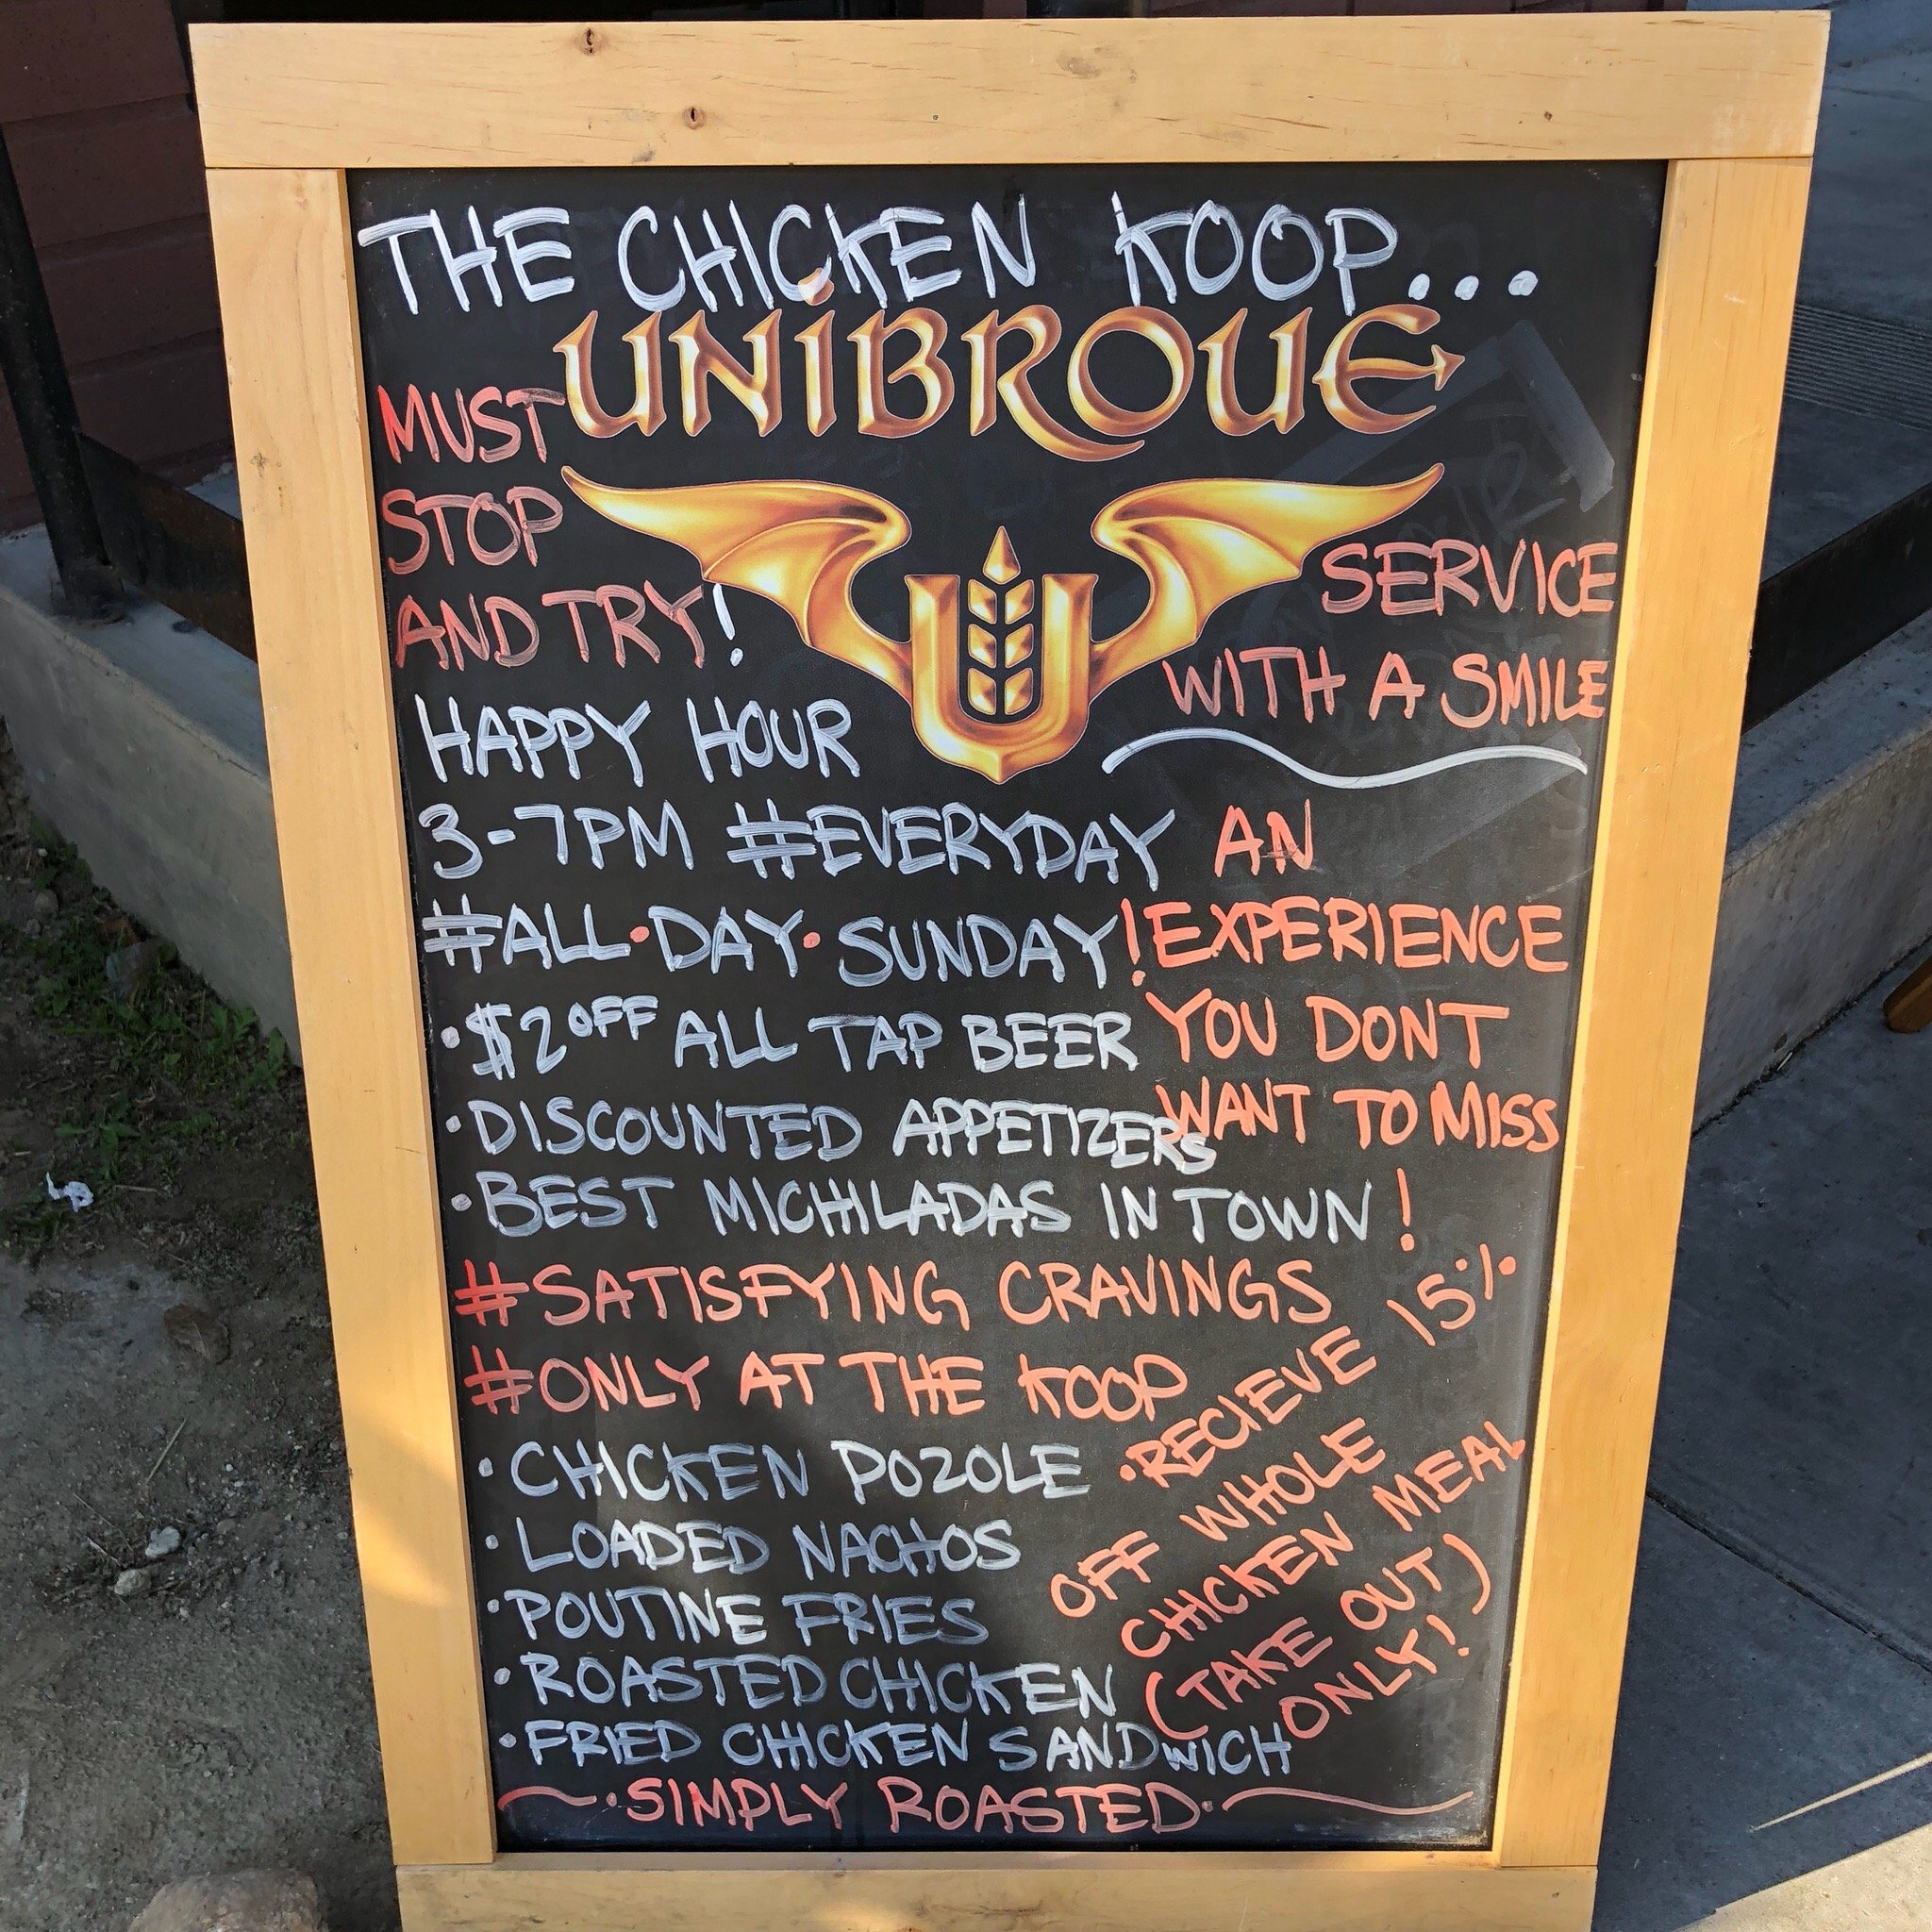 THE CHICKEN KOOP...
UNIBROUE
MUST
STOP
AND TRY!
SERVICE
WITH A SMILE
U
HAPPY HOUR
3-7PM #EVERYDAY
#ALL·DAY·SUNDAY!
·$2 OFF ALL TAP BEER
·DISCOUNTED APPETIZERS
·BEST MICHILADAS IN TOWN
AN
EXPERIENCE
YOU DONT
WANT TO MISS
!
#SATISFYING CRAVINGS
#ONLY AT THE KOOP
·CHICKEN POZOLE
·LOADED NACHOS
·POUTINE FRIES
·ROASTED CHICKEN
·FRIED CHICKEN SANDWICH
·RECIEVE 15%
OFF WHOLE
CHICKEN MEAL
(TAKE OUT
ONLY!)
·SIMPLY ROASTED·